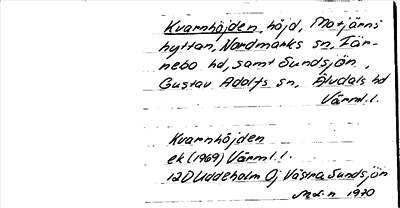 Kvarnhöjden, höjd, Motjärns-
hyttan, Nordmarks sn, Fär-
nebo hd, samt Sundsjön,
Gustav Adolfs sn, Älvdals hd
Värml. l.
Kvarnhöjden
ek (1969) Värml. l.
12D Uddeholm 0j Västra Sundsjön
1970